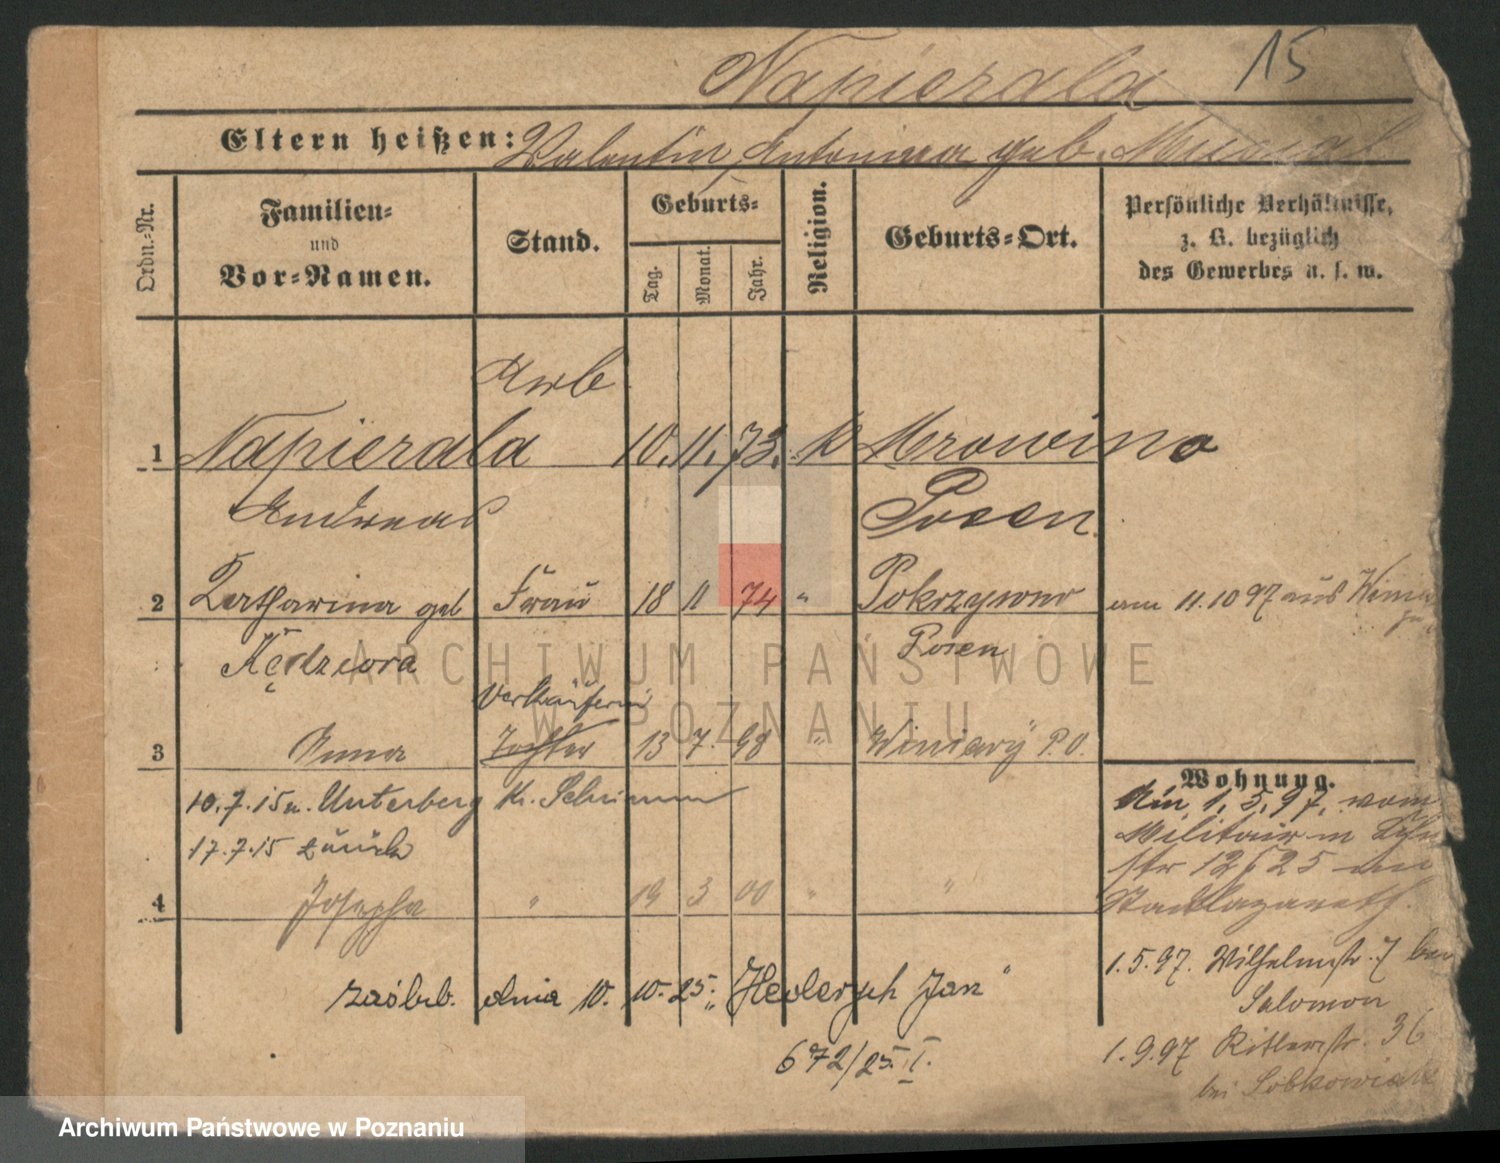 Napierala 15
Eltern heißen: Valentin, Antonina geb. Musial
Ordn.-Nr. Familien- und Vor-Namen. Stand. Geburts- Tag. Monat. Jahr. Religion. Geburts-Ort. Persönliche Verhältnisse, z. B. bezüglich des Gewerbes u. s. w.
Arb
1 Napierala 10. 11. 73. K Mrowino
Andreas Posen.
2 Katharina geb Frau 18 11 74 " Pokrzywno am 11.10 97 aus
Kędziora Posen
Verkäuferin
3 Anna Tochter 13 7. 98 " Winiary P. O.
Wohnung.
10.7.15 n. Unterberg Kr. Schrimm Am 1.5.97. vom
17.7.15 zurück Militair in
str 12 25
4 Josepha " 19 3 00 " " Stadtlazareth.
1.5.97. Wilhelmstr. 7 bei
zaślub. dnia 10. 10. 25. „Hederych Jan"
Salomon
672/25. I.
1.9.97 Ritterstr. 36
bei Sobkowiak
ARCHIWUM PAŃSTWOWE
W POZNANIU
Archiwum Państwowe w Poznaniu